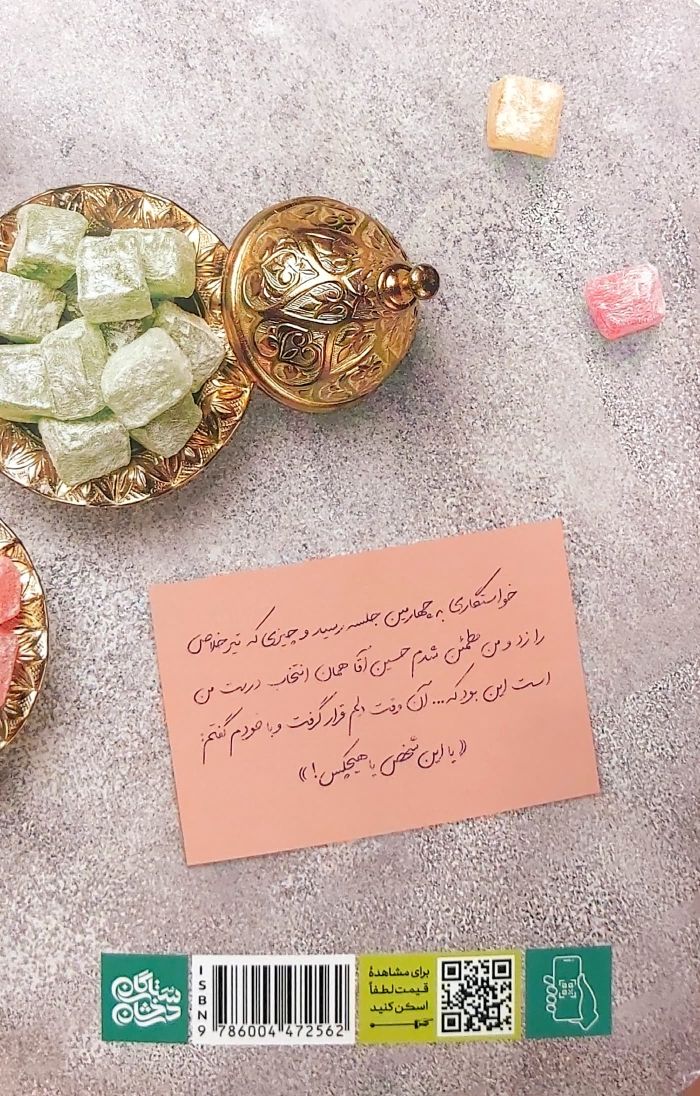 خواستگاری به چهارمین جلسه رسید و چیزی که تیر خلاص
را زد و من مطمئن شدم حسین آقا همان انتخاب درست من
است این بود که... آن وقت دلم قرار گرفت و با خودم گفتم:
«یا این شخص یا هیچکس!»
برای مشاهدهٔ
قیمت لطفاً
اسکن کنید
ISBN
9 786004 472562